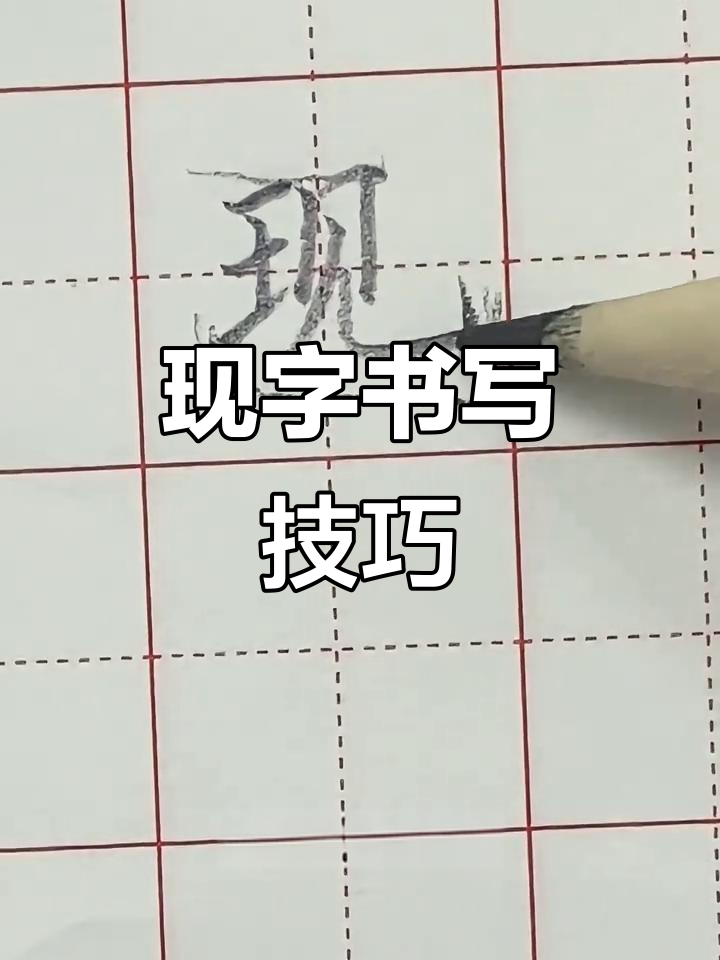 现
现字书写
技巧